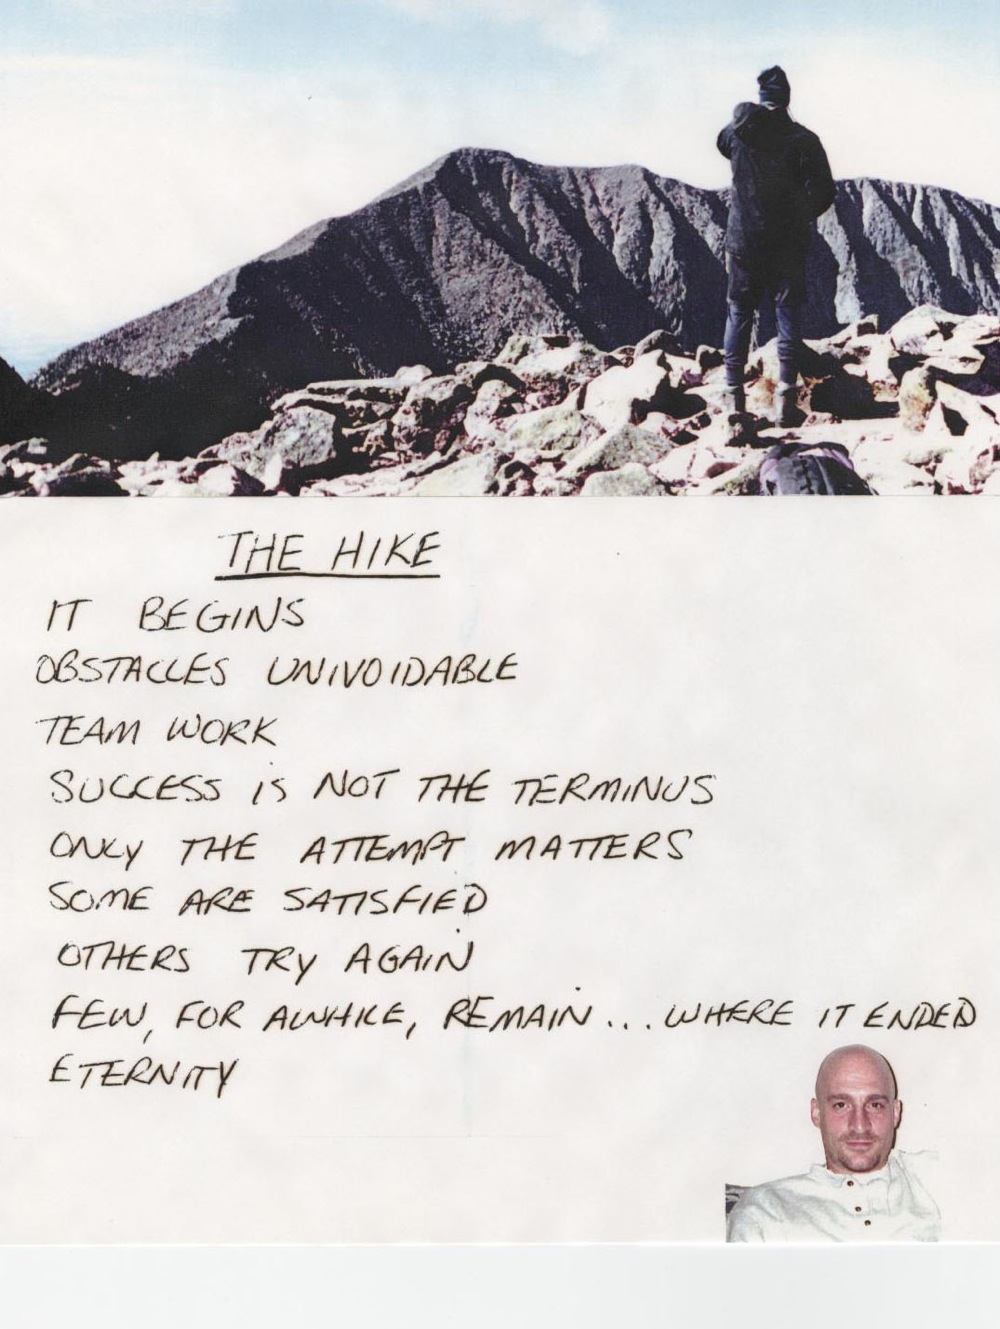 THE HIKE
IT BEGINS
OBSTACLES UNIVOIDABLE
TEAM WORK
SUCCESS IS NOT THE TERMINUS
ONLY THE ATTEMPT MATTERS
SOME ARE SATISFIED
OTHERS TRY AGAIN
FEW, FOR AWHILE, REMAIN... WHERE IT ENDED
ETERNITY